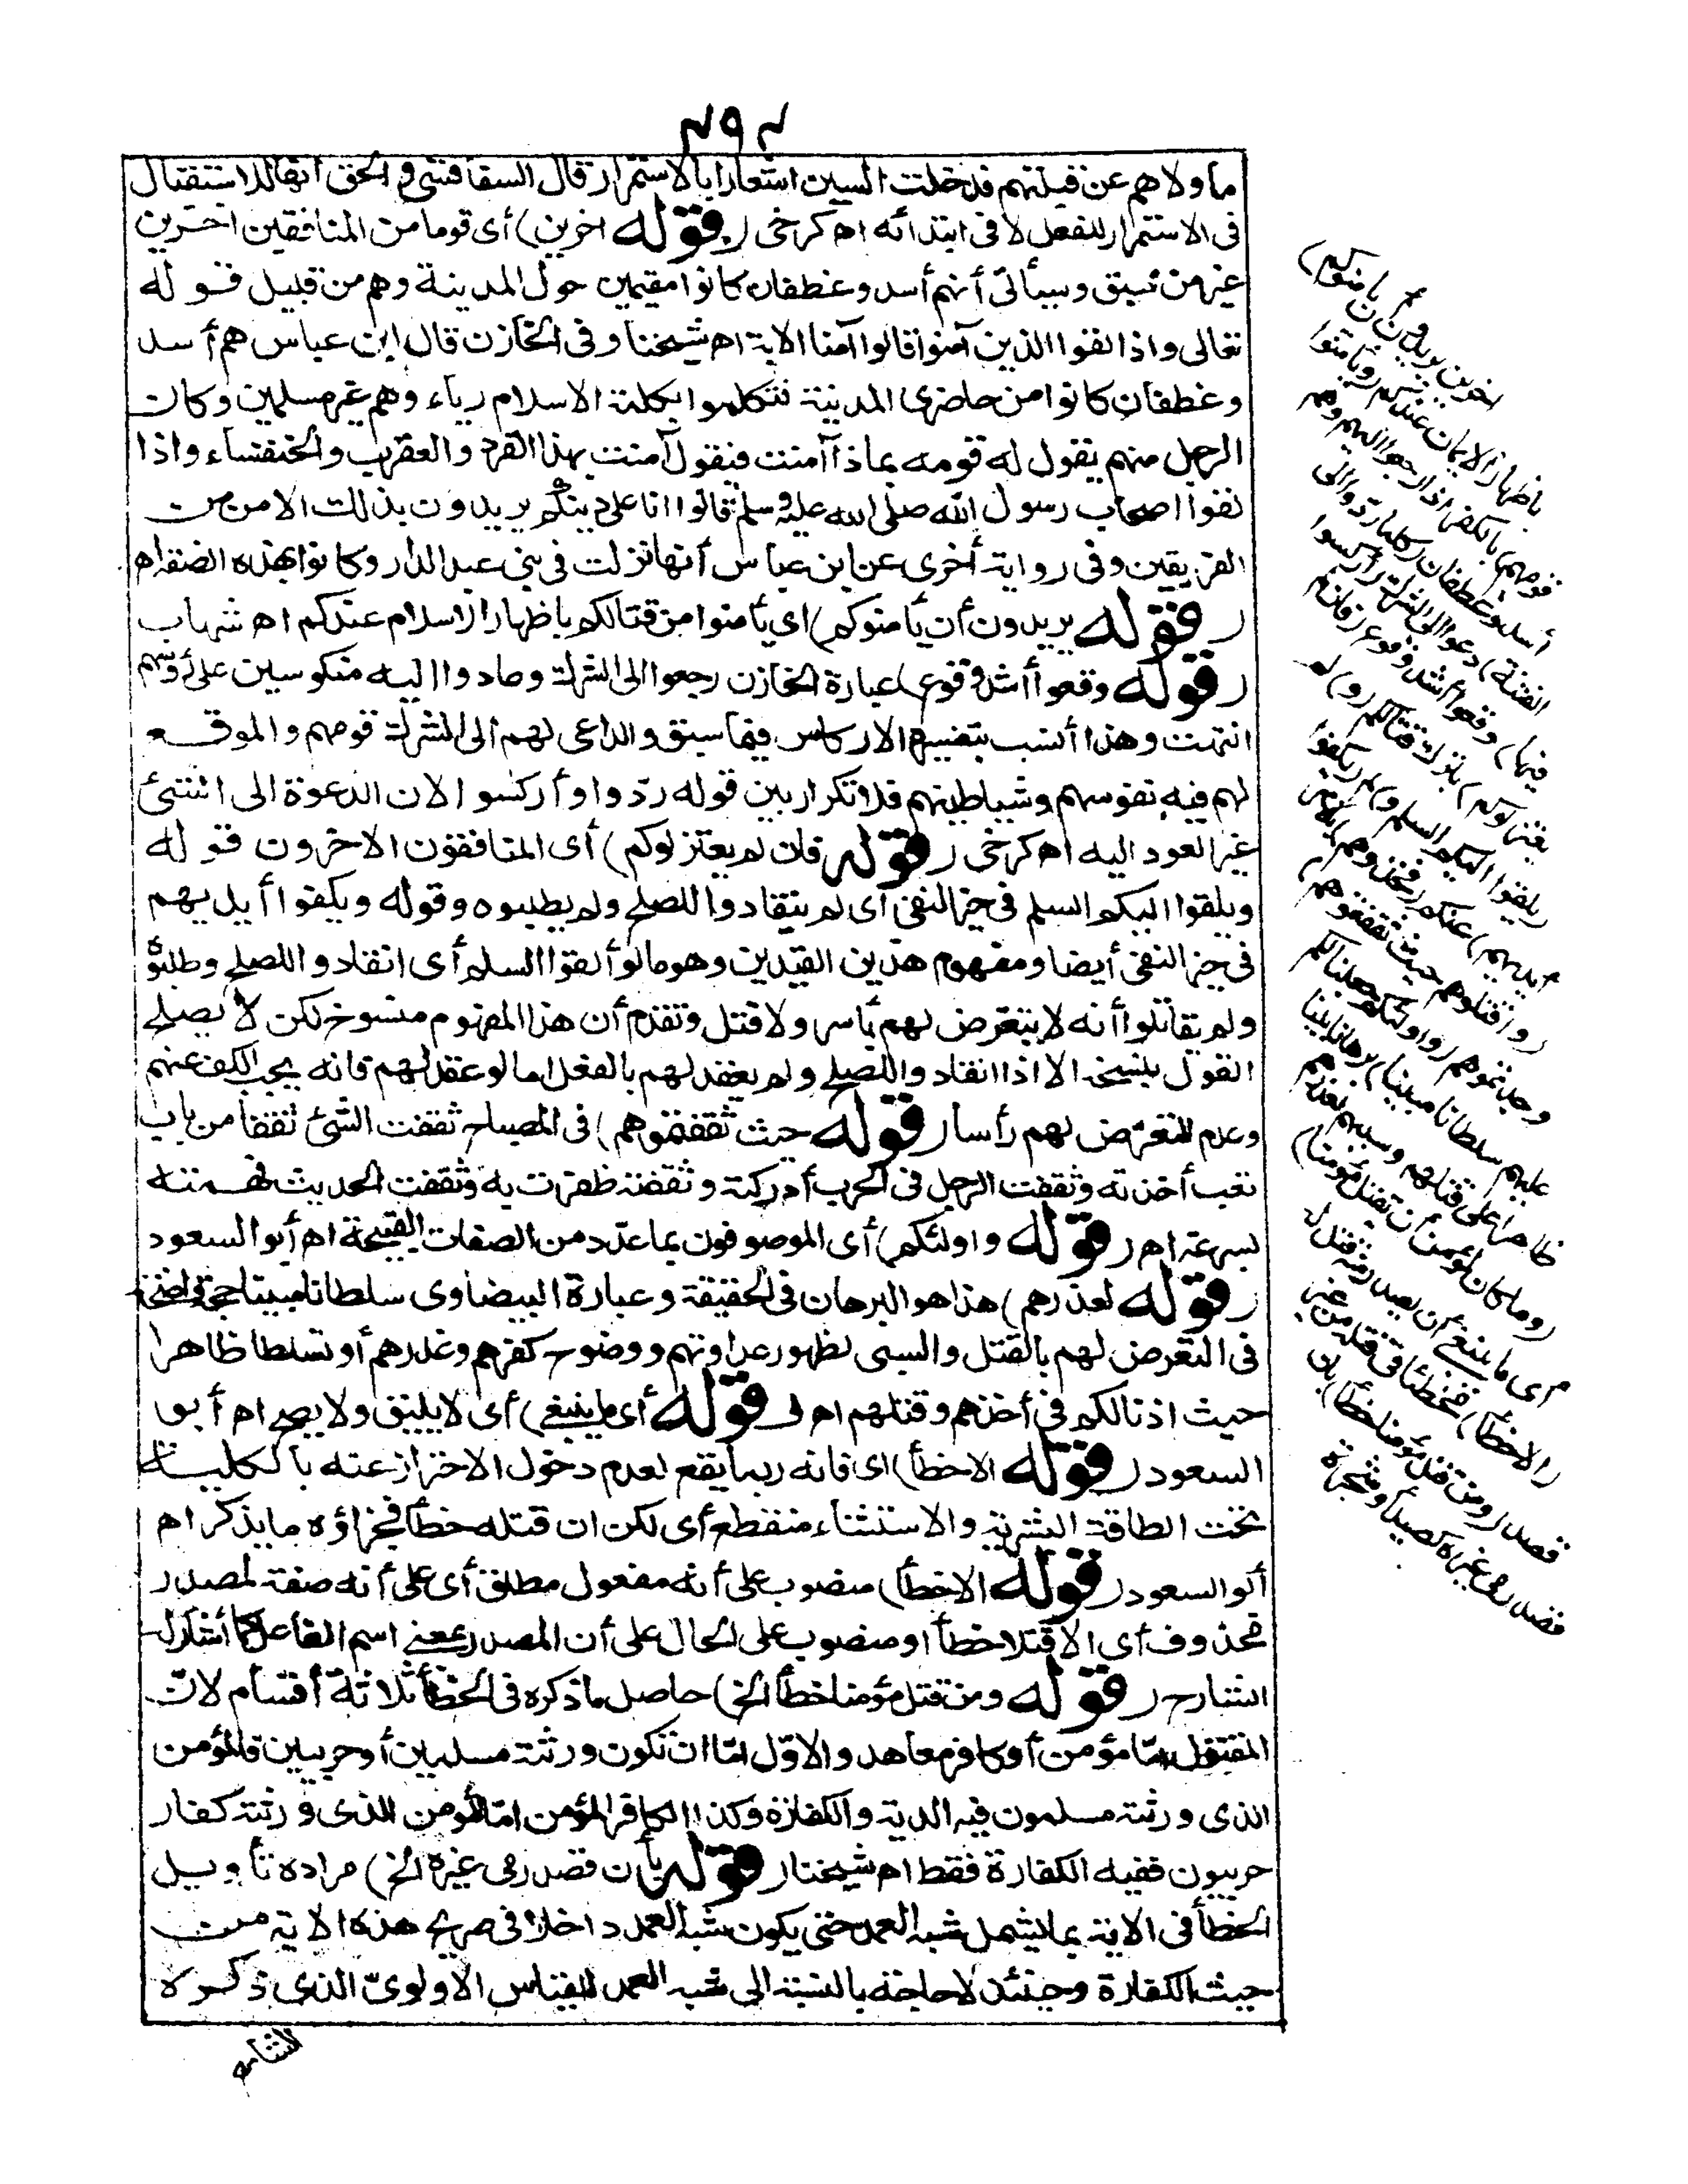 ٢٩٢
ما ولاهم عن قبلتهم فدخلت السين اشعارا بالاستمرار قال السفاقسي والحق أنها للاستقبال
في الاستمرار للفعل لا في ابتدائه اه كرخي (قوله اخرين) أي قوما من المنافقين اخرين
غير من سبق وسيأتي أنهم أسد وغطفان كانوا مقيمين حول المدينة وهم من قبيل قوله
تعالى واذا لقوا الذين آمنوا قالوا آمنا الاية اه شيخنا وفي الخازن قال ابن عباس هم أسد
وغطفان كانوا من حاضري المدينة تتكلموا بكلمة الاسلام رياء وهم غير مسلمين وكان
الرجل منهم يقول له قومه بماذا آمنت فيقول آمنت بهذا القرد والعقرب والخنفساء واذا
لقوا اصحاب رسول الله صلى الله عليه وسلم قالوا انا على دينكم يريدون بذلك الامن من
الفريقين وفي رواية أخرى عن ابن عباس أنها نزلت في بني عبد الدار وكانوا بهذه الصفة اه
(قوله يريدون أن يأمنوكم) اي يأمنوا من قتالكم باظهار الاسلام عندكم اه شهاب
(قوله وقعوا أشد وقوع) عبارة الخازن رجعوا الى الشرك وعادوا اليه منكوسين على رؤسهم
انتهت وهذا أنسب بتفسير الاركاس فيما سبق والداعي لهم الى الشرك قومهم والموقع
لهم فيه نفوسهم وشياطينهم فلا تكرار بين قوله ردوا وأركسوا لان الدعوة الى الشئ
غير العود اليه اه كرخي (قوله فان لم يعتزلوكم) أي المنافقون الاخرون قوله
ويلقوا اليكم السلم في حيز النفي أي لم ينقادوا للصلح ولم يطلبوه وقوله ويكفوا أيديهم
في حيز النفي أيضا ومفهوم هذين القيدين وهو ما لو ألقوا السلم أي انقادوا للصلح وطلبوه
ولم يقاتلوا أنه لا يتعرض لهم بأسر ولا قتل وتقدم أن هذا المفهوم منسوخ لكن لا يصلح
القول بنسخه الا اذا انقادوا للصلح ولم يعقد لهم بالفعل اما لو عقد لهم فانه يجب الكف عنهم
وعدم التعرض لهم رأسا (قوله حيث ثقفتموهم) في المصباح ثقفت الشئ ثقفا من باب
تعب أخذته وثقفت الرجل في الحرب أدركته وثقفته ظفرت به وثقفت الحديث فهمته
بسرعة اه (قوله واولئكم) أي الموصوفون بما عدد من الصفات القبيحة اه أبو السعود
(قوله لعذرهم) هذا هو البرهان في الحقيقة وعبارة البيضاوي سلطانا مبينا حجة واضحة
في التعرض لهم بالقتل والسبي لظهور عداوتهم ووضوح كفرهم وغدرهم أو تسلطا ظاهرا
حيث اذنا لكم في أخذهم وقتلهم اه (قوله أي ما ينبغي) أي لا يليق ولا يصح اه أبو
السعود (قوله الا خطأ) اي فانه ربما يقع لعدم دخول الاحتراز عنه بالكلية
تحت الطاقة البشرية والاستثناء منقطع أي لكن ان قتله خطأ فجزاؤه ما يذكر اه
أبو السعود (قوله الا خطأ) منصوب على أنه مفعول مطلق أي على أنه صفة لمصدر
محذوف أي الا قتلا خطأ او منصوب على الحال على أن المصدر بمعنى اسم الفاعل كما أشار له
الشارح (قوله ومن قتل مؤمنا خطأ الخ) حاصل ما ذكره في الخطأ ثلاثة أقسام لان
المقتول اما مؤمن أو كافر معاهد والاول اما ان تكون ورثته مسلمين أو حربيين فالمؤمن
الذي ورثته مسلمون فيه الدية والكفارة وكذا الكافر المؤمن اما المؤمن الذي ورثته كفار
حربيون ففيه الكفارة فقط اه شيخنا (قوله بأن قصد رمي غيره الخ) مراده تأويل
الخطأ في الاية بما يشمل شبه العمد حتى يكون شبه العمد داخلا في صريح هذه الاية من
حيث الكفارة وحينئذ لا حاجة بالنسبة الى شبه العمد للقياس الاولوي الذي ذكره
الشارح
اخرين يريدون أن يأمنوكم)
باظهار الايمان عندكم (ويأمنوا
قومهم) بالكفر اذا رجعوا اليهم وهم
أسد وغطفان (كلما ردوا الى
الفتنة) دعوا الى الشرك (اركسوا
فيها) وقعوا أشد وقوع (فان لم
يعتزلوكم) بترك قتالكم (و) لم
يلقوا اليكم السلم و) لم (يكفوا
أيديهم) عنكم (فخذوهم) بالاسر
(واقتلوهم حيث ثقفتموهم)
وجدتموهم (واولئكم جعلنا لكم
عليهم سلطانا مبينا) برهانا بينا
ظاهرا على قتلهم وسبيهم لغدرهم
(وما كان لمؤمن أن يقتل مؤمنا)
أي ما ينبغي أن يصدر منه قتل له
(الا خطأ) مخطئا في قتله من غير
قصد (ومن قتل مؤمنا خطأ) بان
قصد رمي غيره كصيد أو شجرة